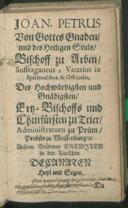 JOAN. PETRUS
Von Gottes Gnaden/
und des Heiligen Stuls/
Bischoff zu Arben/
Suffraganeus, Vicarius in
Spiritualibus, & Officialis,
Des Hochwürdigsten und
Gnädigsten/
Ertz-Bischoffs und
Churfürsten zu Trier/
Administratorn zu Prüm/
Probsts zu Weissenburg/
DECANTEN
Heyl und Segen.